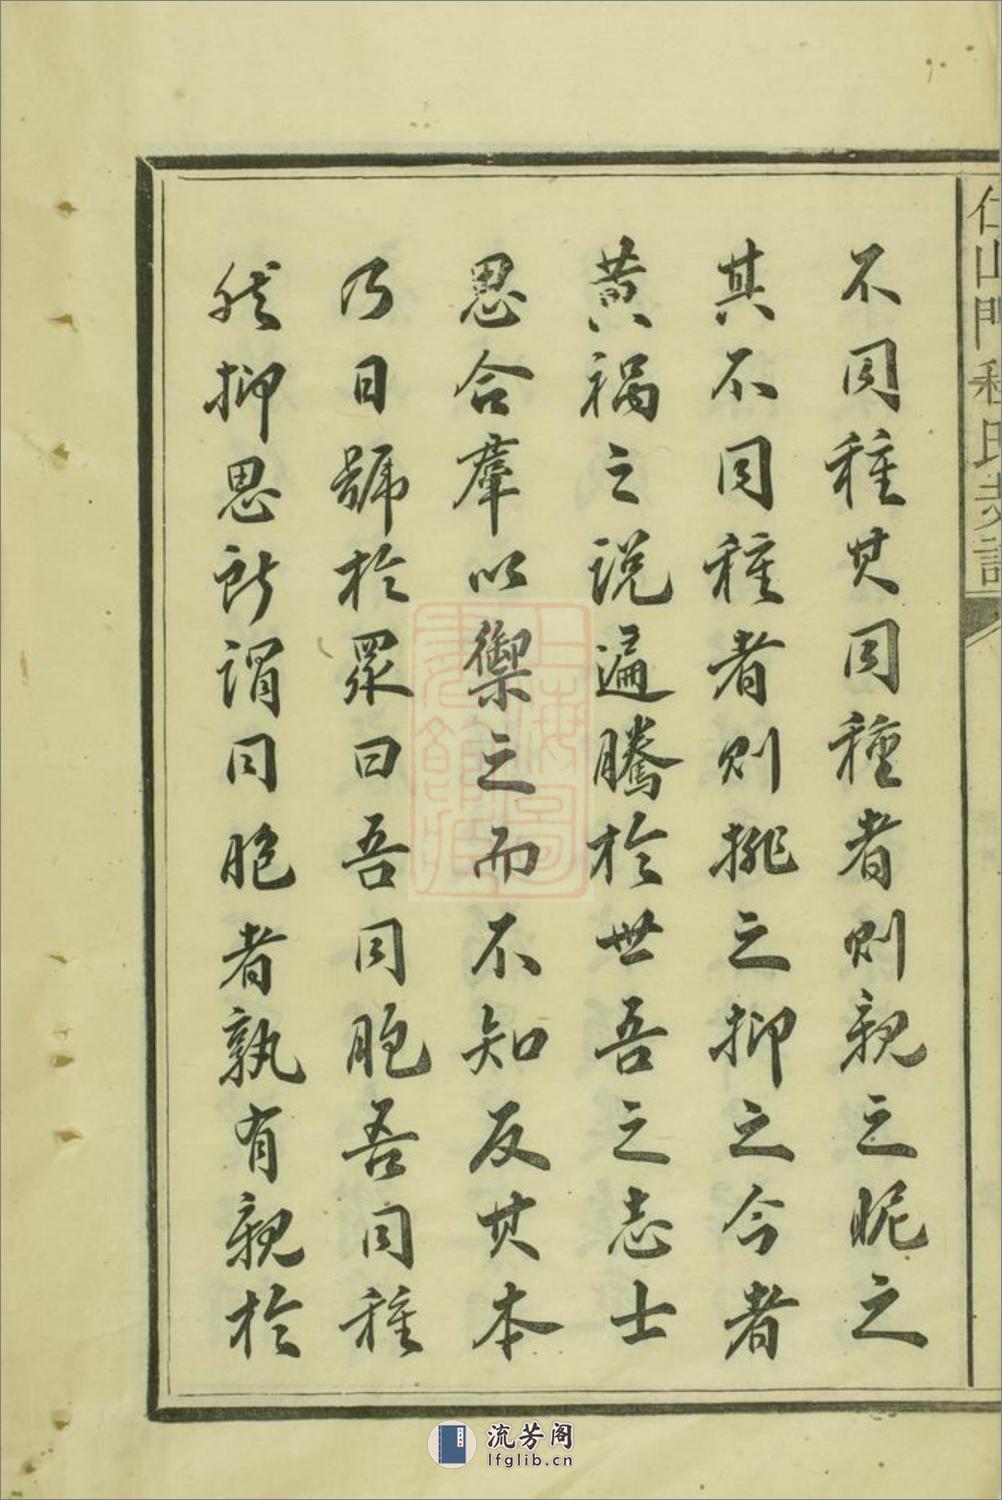 不同種其同種者則親之昵之
其不同種者則排之抑之今者
黄禍之說遍騰於世吾之志士
思合羣以禦之而不知反其本
乃日號於眾曰吾同胞吾同種
然抑思所謂同胞者孰有親於
仁山門程氏支譜
上海圖書館藏
流芳阁
lfglib.cn